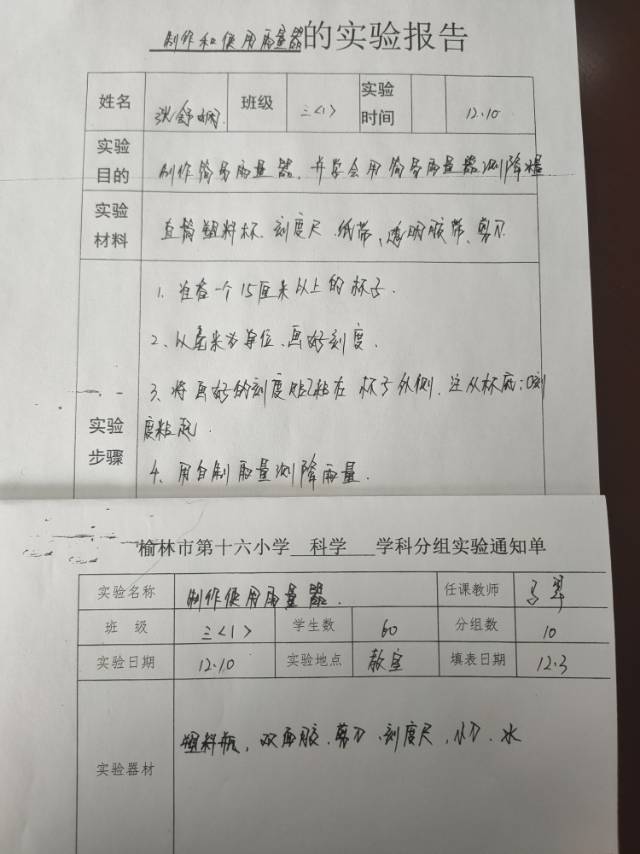 制作和使用雨量器的实验报告
姓名 张舒 班级 三<1> 实验时间 12.10
实验目的 制作简易雨量器，并学会用简易雨量器测降量
实验材料 直筒塑料杯、刻度尺、纸带、透明胶带、剪刀
实验步骤
1、准备一个15厘米以上的杯子.
2、以毫米为单位，画好刻度.
3、将画好的刻度贴在杯子外侧.注从杯底:0刻
度粘起.
4、用自制雨量测降雨量.
榆林市第十六小学 科学 学科分组实验通知单
实验名称 制作使用雨量器. 任课教师
班 级 三<1> 学生数 60 分组数 10
实验日期 12.10 实验地点 教室 填表日期 12.3
实验器材 塑料瓶，双面胶、剪刀、刻度尺，小刀、水